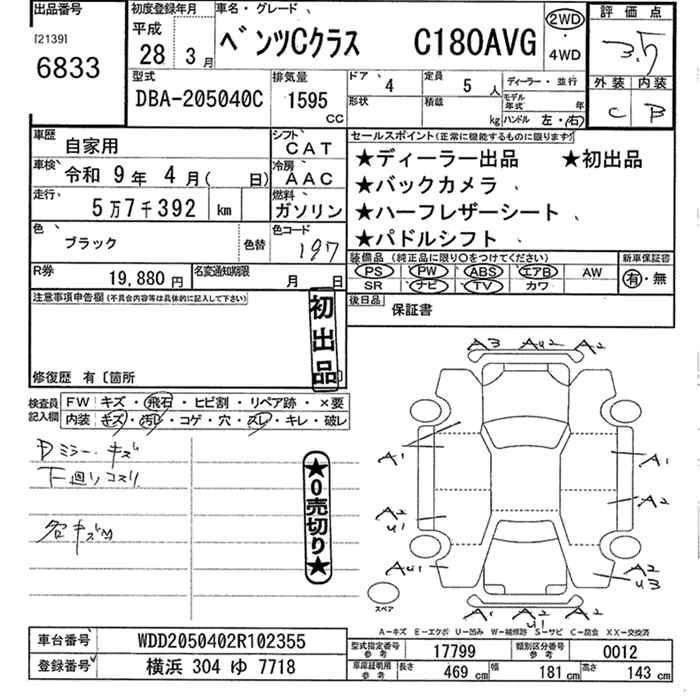 出品番号
[2139]
6833
初度登録年月
平成
28 3月
車名・グレード
ベンツCクラス C180AVG
2WD
・
4WD
評価点
3.5
外装 内装
C B
型式
DBA-205040C
排気量
1595
CC
ドア 4
定員 5 人
形状
積載 kg
ディーラー・並行
モデル年式 年
ハンドル 左・右
車歴 自家用
シフト CAT
車検 令和 9年 4月( 日)
冷房 AAC
走行 5万7千392 km
燃料 ガソリン
色 ブラック
色替
色コード 197
R券 19,880円
名変通知期限 月 日
セールスポイント(正常に機能するものに限ります)
★ディーラー出品 ★初出品
★バックカメラ
★ハーフレザーシート
★パドルシフト
装備品(純正品に限り○をつけてください)
新車保証書
PS PW ABS エアB AW
SR ナビ TV カワ
有・無
後日品 保証書
注意事項申告欄(不具合内容等は具体的に記入して下さい)
初出品
修復歴 有〔箇所
検査員記入欄
FW キズ・飛石・ヒビ割・リペア跡・×要
内装 キズ・汚れ・コゲ・穴・スレ・キレ・破レ
Dミラーキズ
下廻りコスリ
名キズM
★0売切り★
A3 AU2 A2
A1
A1
A2
A2
U1
AU1
A2
U3
スペア
A1 A2 A2
U1
A-キズ E-エクボ U-凹み W-補修跡 S-サビ C-腐食 XX-交換済
車台番号 WDD2050402R102355
登録番号 横浜 304 ゆ 7718
型式指定番号 参考 17799
類別区分番号 参考 0012
車庫証明用 参考 長さ 469 cm 幅 181 cm 高さ 143 cm